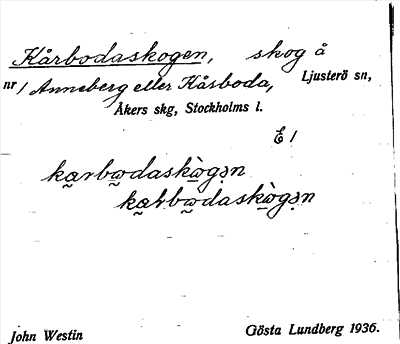 Kårbodaskogen, skog å
nr 1 Anneberg eller Kårboda, Ljusterö sn,
Åkers skg, Stockholms l.
E 1
ka̰rbw̰daskò̠gə̣n
ka̰rbw̰daskò̠gə̣n
John Westin Gösta Lundberg 1936.